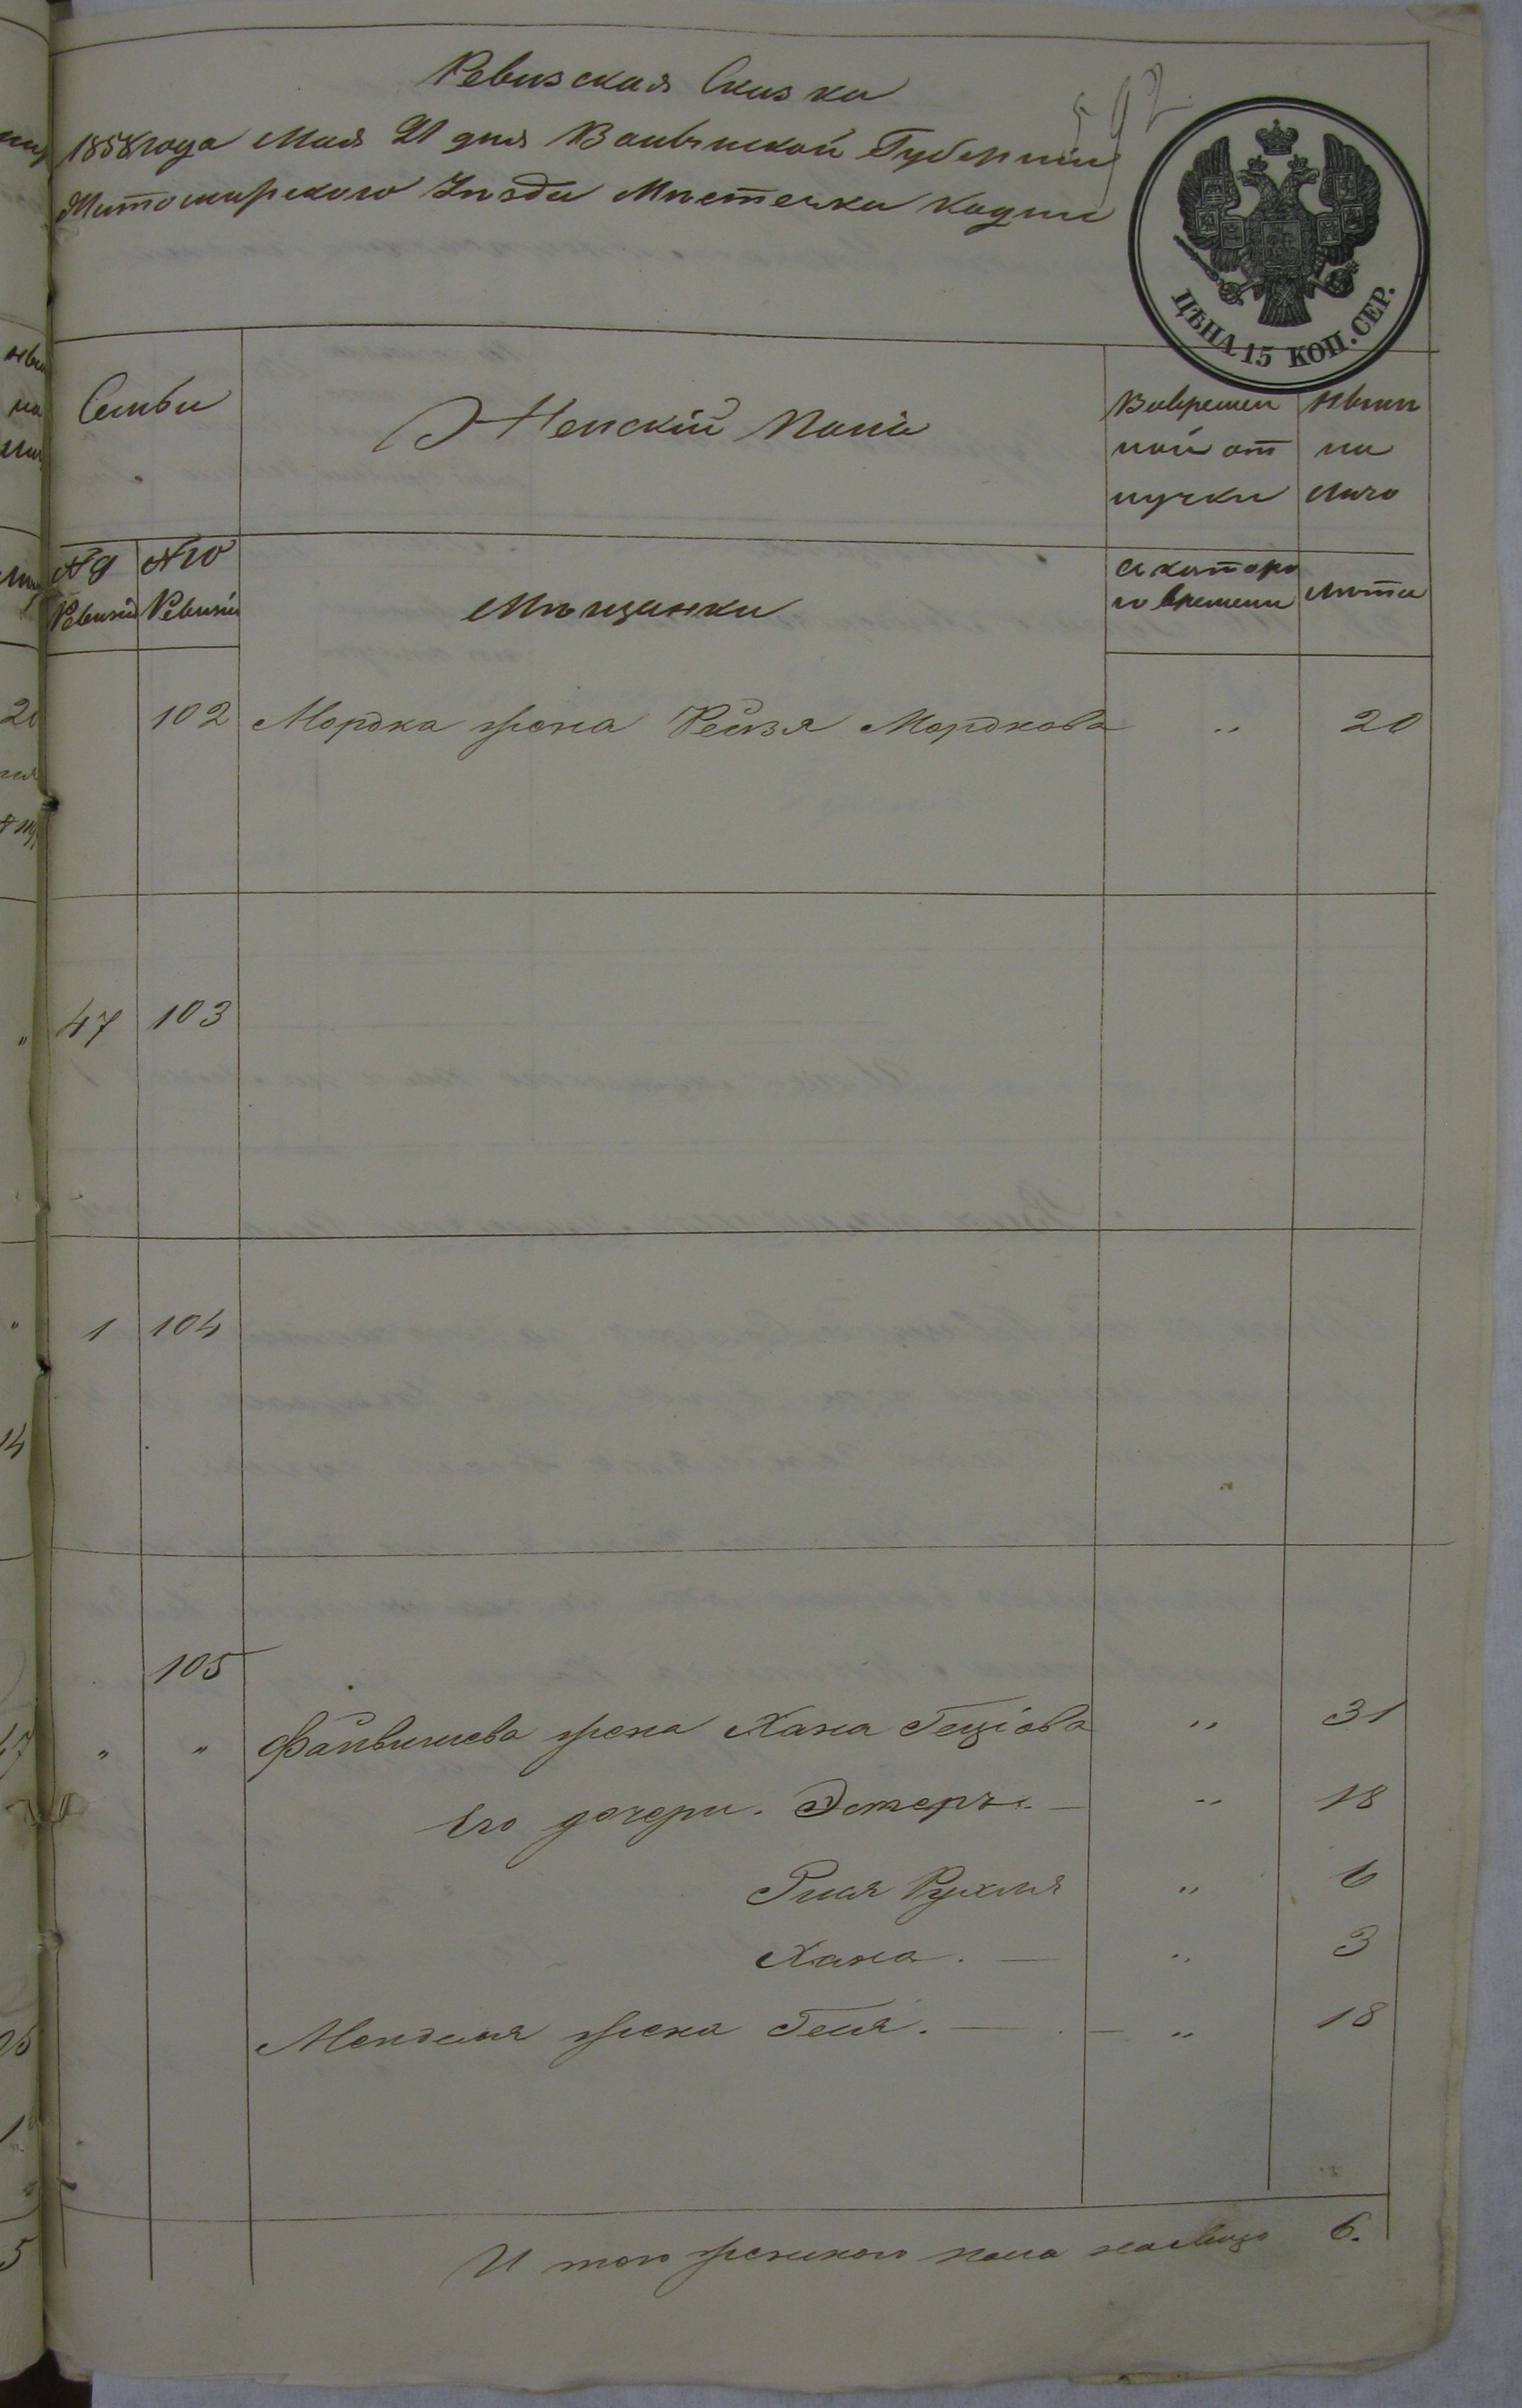 Ревизская Сказка
592
1858 года Мая 21 дня Волынской Губернии
Житомирского Уѣзда Мѣстечка Кодни
ЦѢНА 15 КОП. СЕР.
Семьи
Женскій Полъ
Вовремен
ной от
лучки
Нынѣ
на
лицо
№ 9 Ревизіи
№ 10 Ревизіи
Мѣщанки
съ которо
го времени
Лѣта
102 Мордка жена Рейзя Мордкова „ 20
47 103
1 104
105
„ „ Файвишева жена Хана Геціова „ 31
Его дочери. Эстеръ. — „ 18
Рухля „ 6
Хана. — „ 3
Менделя жена Геня. — „ 18
И того женского пола налицо 6.